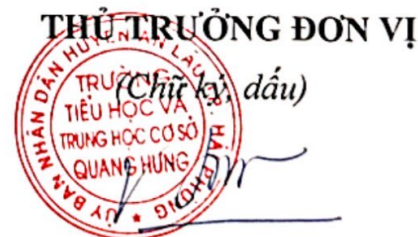 THỦ TRƯỞNG ĐƠN VỊ
(Chữ ký, dấu)
ỦY BAN NHÂN DÂN HUYỆN AN LÃO - TP. HẢI PHÒNG
TRƯỜNG
TIỂU HỌC VÀ
TRUNG HỌC CƠ SỞ
QUANG HƯNG